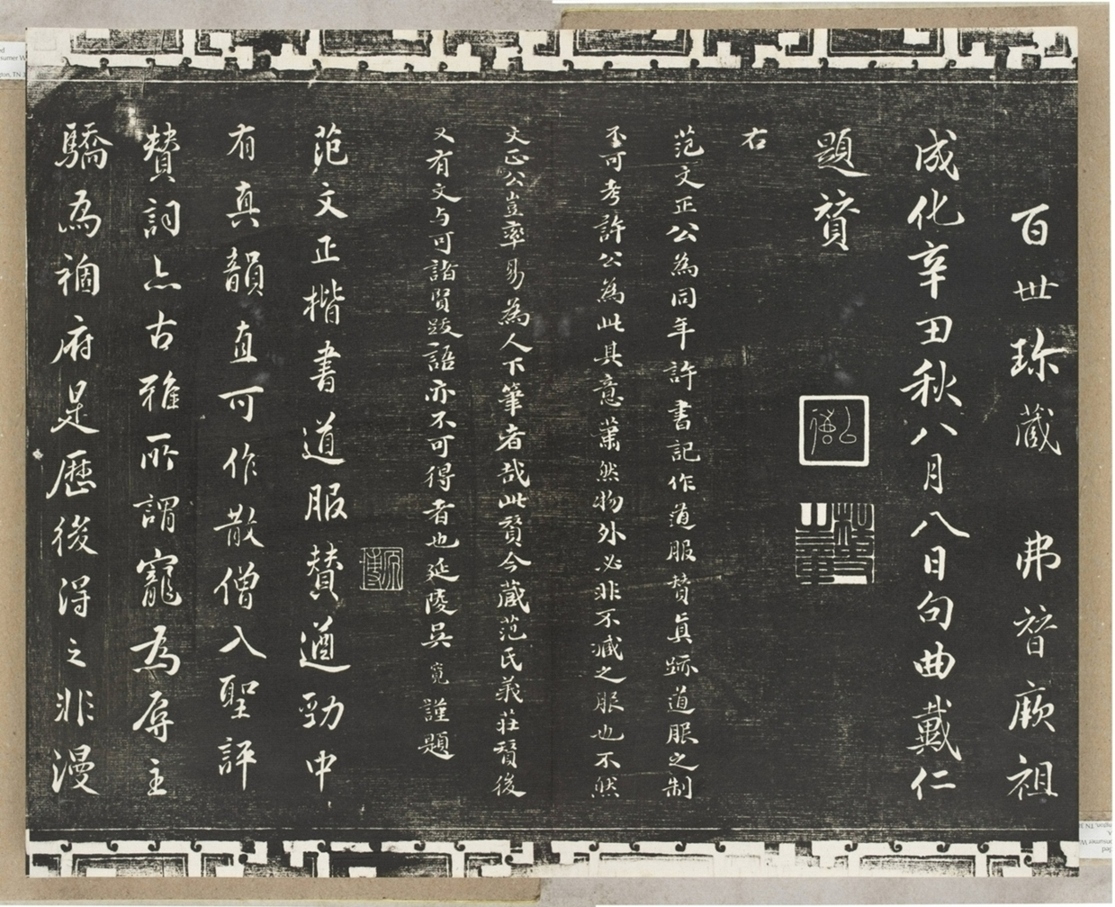 百世珎藏弗替厥祖
成化辛丑秋八月八日句曲戴仁
題贊
右
范文正公為同年許書記作道服赞真跡道服之制
不可考許公為此其意蕭然物外必非不減之服也不然
文正公豈率易為人下筆者哉此贊今藏范氏義莊贊後
又有文与可諸賢跋語亦不可得者也延陵吳寬謹題
范文正楷書道服赞遒勁中
有真韻直可作散僧入聖評
赞詞亦古雅所謂寵為辱主
驕為禍府是歷後得之非漫
原博